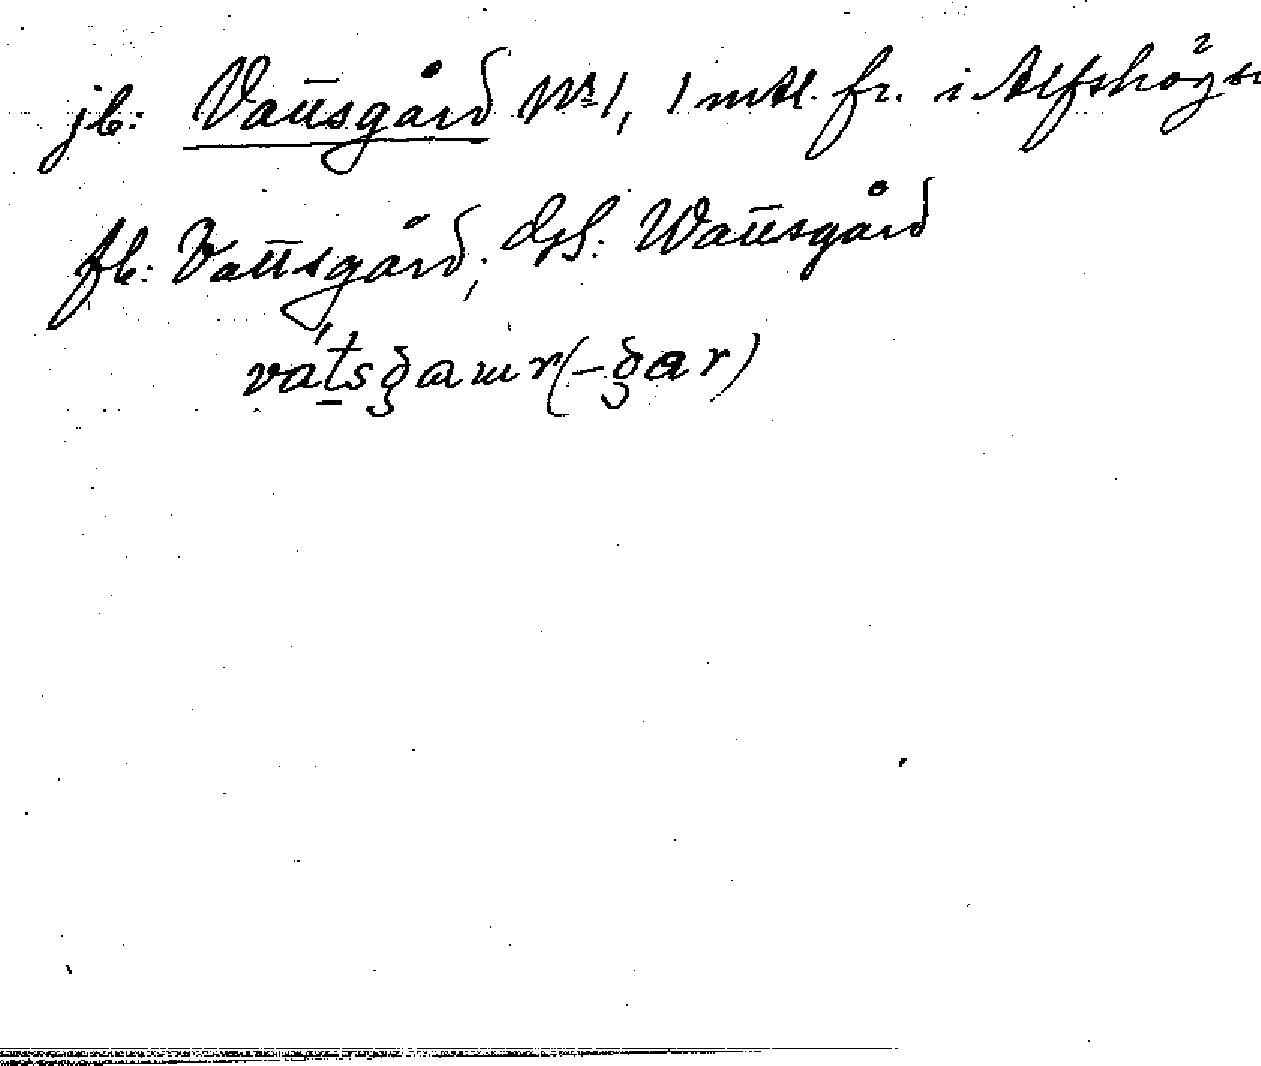 jb: Vattsgård Nr 1, 1 mtl. fr. i Alfshögs
fb: Vattsgård; dgl. Wattsgård
vátsgaɯr (-gar)